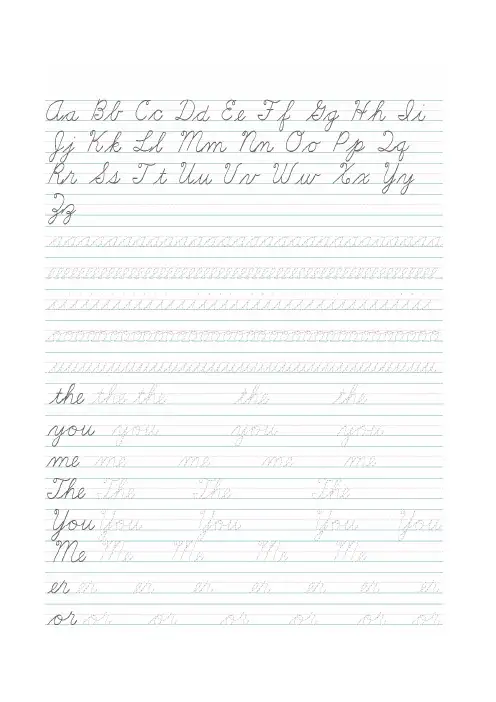 Aa Bb Cc Dd Ee Ff Gg Hh Ii
Jj Kk Ll Mm Nn Oo Pp Qq
Rr Ss Tt Uu Vv Ww Xx Yy
Zz
aaaaaaaaaaaaaaaaaaaaaaaaaaaa
eeeeeeeeeeeeeeeeeeeeeeeeeeeeeeeeeeee
iiiiiiiiiiiiiiiiiiiiiiiiiiiiii
oooooooooooooooooooooooooooo
uuuuuuuuuuuuuuuuuuuuuuuuuuuu
the the the the the
you you you you
me me me me me
The The The The
You You You You You
Me Me Me Me Me
er er er er er er er er
or or or or or or or